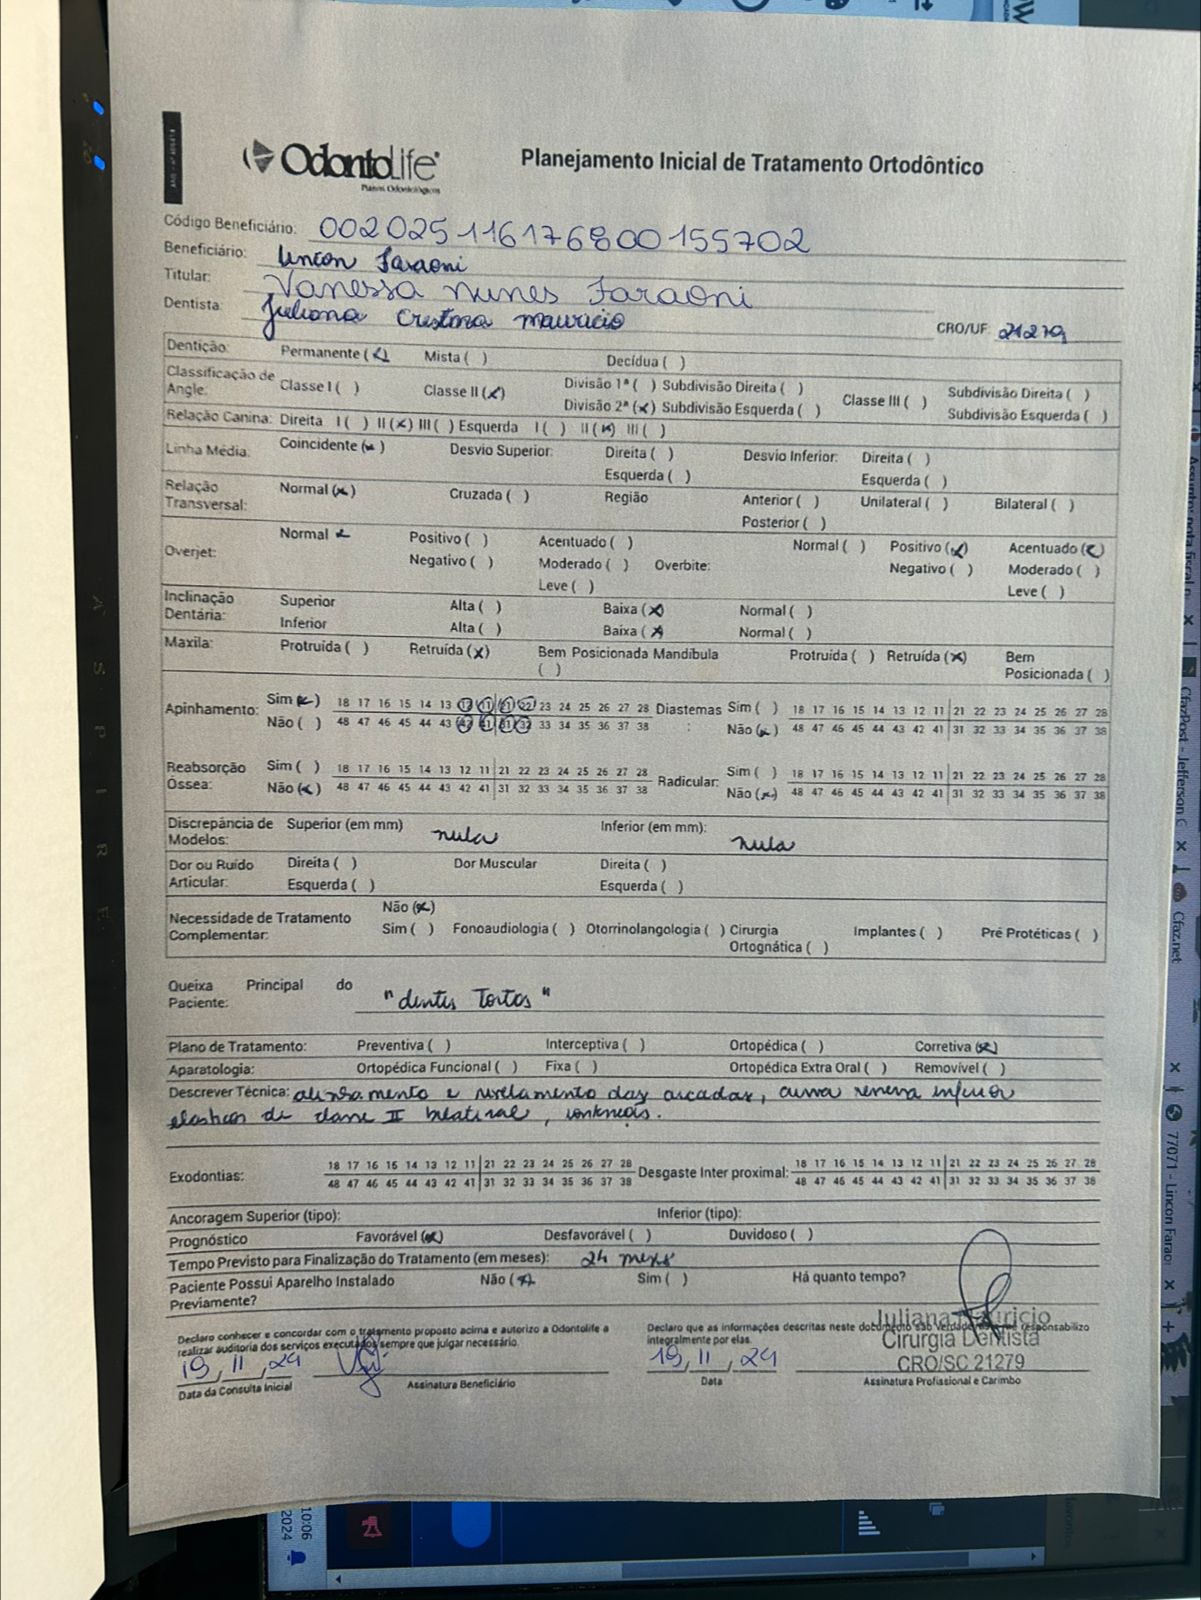 OdontoLife
Planos Odontológicos
Planejamento Inicial de Tratamento Ortodôntico
Código Beneficiário: 002025116176800155702
Beneficiário: Lincon Faraoni
Titular: Vanessa Nunes Faraoni
Dentista: Juliana Cristina Mauricio CRO/UF: 21279
Dentição: Permanente (x) Mista ( ) Decídua ( )
Classificação de Angle: Classe I ( ) Classe II (x) Divisão 1ª ( ) Subdivisão Direita ( ) Classe III ( ) Subdivisão Direita ( )
Divisão 2ª (x) Subdivisão Esquerda ( ) Subdivisão Esquerda ( )
Relação Canina: Direita I ( ) II (x) III ( ) Esquerda I ( ) II (x) III ( )
Linha Média: Coincidente (x) Desvio Superior: Direita ( ) Desvio Inferior: Direita ( )
Esquerda ( ) Esquerda ( )
Relação Transversal: Normal (x) Cruzada ( ) Região Anterior ( ) Unilateral ( ) Bilateral ( )
Posterior ( )
Overjet: Normal x Positivo ( ) Acentuado ( ) Normal ( ) Positivo (x) Acentuado (x)
Negativo ( ) Moderado ( ) Overbite: Negativo ( ) Moderado ( )
Leve ( ) Leve ( )
Inclinação Dentária: Superior Alta ( ) Baixa (x) Normal ( )
Inferior Alta ( ) Baixa (x) Normal ( )
Maxila: Protruída ( ) Retruída (x) Bem Posicionada Mandíbula ( ) Protruída ( ) Retruída (x) Bem Posicionada ( )
Apinhamento: Sim (x) 18 17 16 15 14 13 12 11 21 22 23 24 25 26 27 28 Diastemas : Sim ( ) 18 17 16 15 14 13 12 11 21 22 23 24 25 26 27 28
Não ( ) 48 47 46 45 44 43 42 41 31 32 33 34 35 36 37 38 Não (x) 48 47 46 45 44 43 42 41 31 32 33 34 35 36 37 38
Reabsorção Óssea: Sim ( ) 18 17 16 15 14 13 12 11 21 22 23 24 25 26 27 28 Radicular: Sim ( ) 18 17 16 15 14 13 12 11 21 22 23 24 25 26 27 28
Não (x) 48 47 46 45 44 43 42 41 31 32 33 34 35 36 37 38 Não (x) 48 47 46 45 44 43 42 41 31 32 33 34 35 36 37 38
Discrepância de Modelos: Superior (em mm) nula Inferior (em mm): nula
Dor ou Ruído Articular: Direita ( ) Dor Muscular Direita ( )
Esquerda ( ) Esquerda ( )
Necessidade de Tratamento Complementar: Não (x)
Sim ( ) Fonoaudiologia ( ) Otorrinolangologia ( ) Cirurgia Ortognática ( ) Implantes ( ) Pré Protéticas ( )
Queixa Principal do Paciente: "dentes Tortos"
Plano de Tratamento: Preventiva ( ) Interceptiva ( ) Ortopédica ( ) Corretiva (x)
Aparatologia: Ortopédica Funcional ( ) Fixa ( ) Ortopédica Extra Oral ( ) Removível ( )
Descrever Técnica: alinhamento e nivelamento das arcadas, curva reversa inferior
elasticos de classe II bilateral,
Exodontias: 18 17 16 15 14 13 12 11 21 22 23 24 25 26 27 28 Desgaste Inter proximal: 18 17 16 15 14 13 12 11 21 22 23 24 25 26 27 28
48 47 46 45 44 43 42 41 31 32 33 34 35 36 37 38 48 47 46 45 44 43 42 41 31 32 33 34 35 36 37 38
Ancoragem Superior (tipo): Inferior (tipo):
Prognóstico Favorável (x) Desfavorável ( ) Duvidoso ( )
Tempo Previsto para Finalização do Tratamento (em meses): 24 meses
Paciente Possui Aparelho Instalado Previamente? Não (x) Sim ( ) Há quanto tempo?
Declaro conhecer e concordar com o tratamento proposto acima e autorizo a Odontolife a
realizar auditoria dos serviços executados sempre que julgar necessário.
19, 11, 24
Data da Consulta Inicial Assinatura Beneficiário
Declaro que as informações descritas neste documento são verdadeiras e me responsabilizo
integralmente por elas.
19, 11, 24
Data
Juliana Mauricio
Cirurgia Dentista
CRO/SC 21279
Assinatura Profissional e Carimbo
ASPIRE
10:06
2024
CfazPost - Jefferson C
Cfaz.net
77071 - Lincon Farao